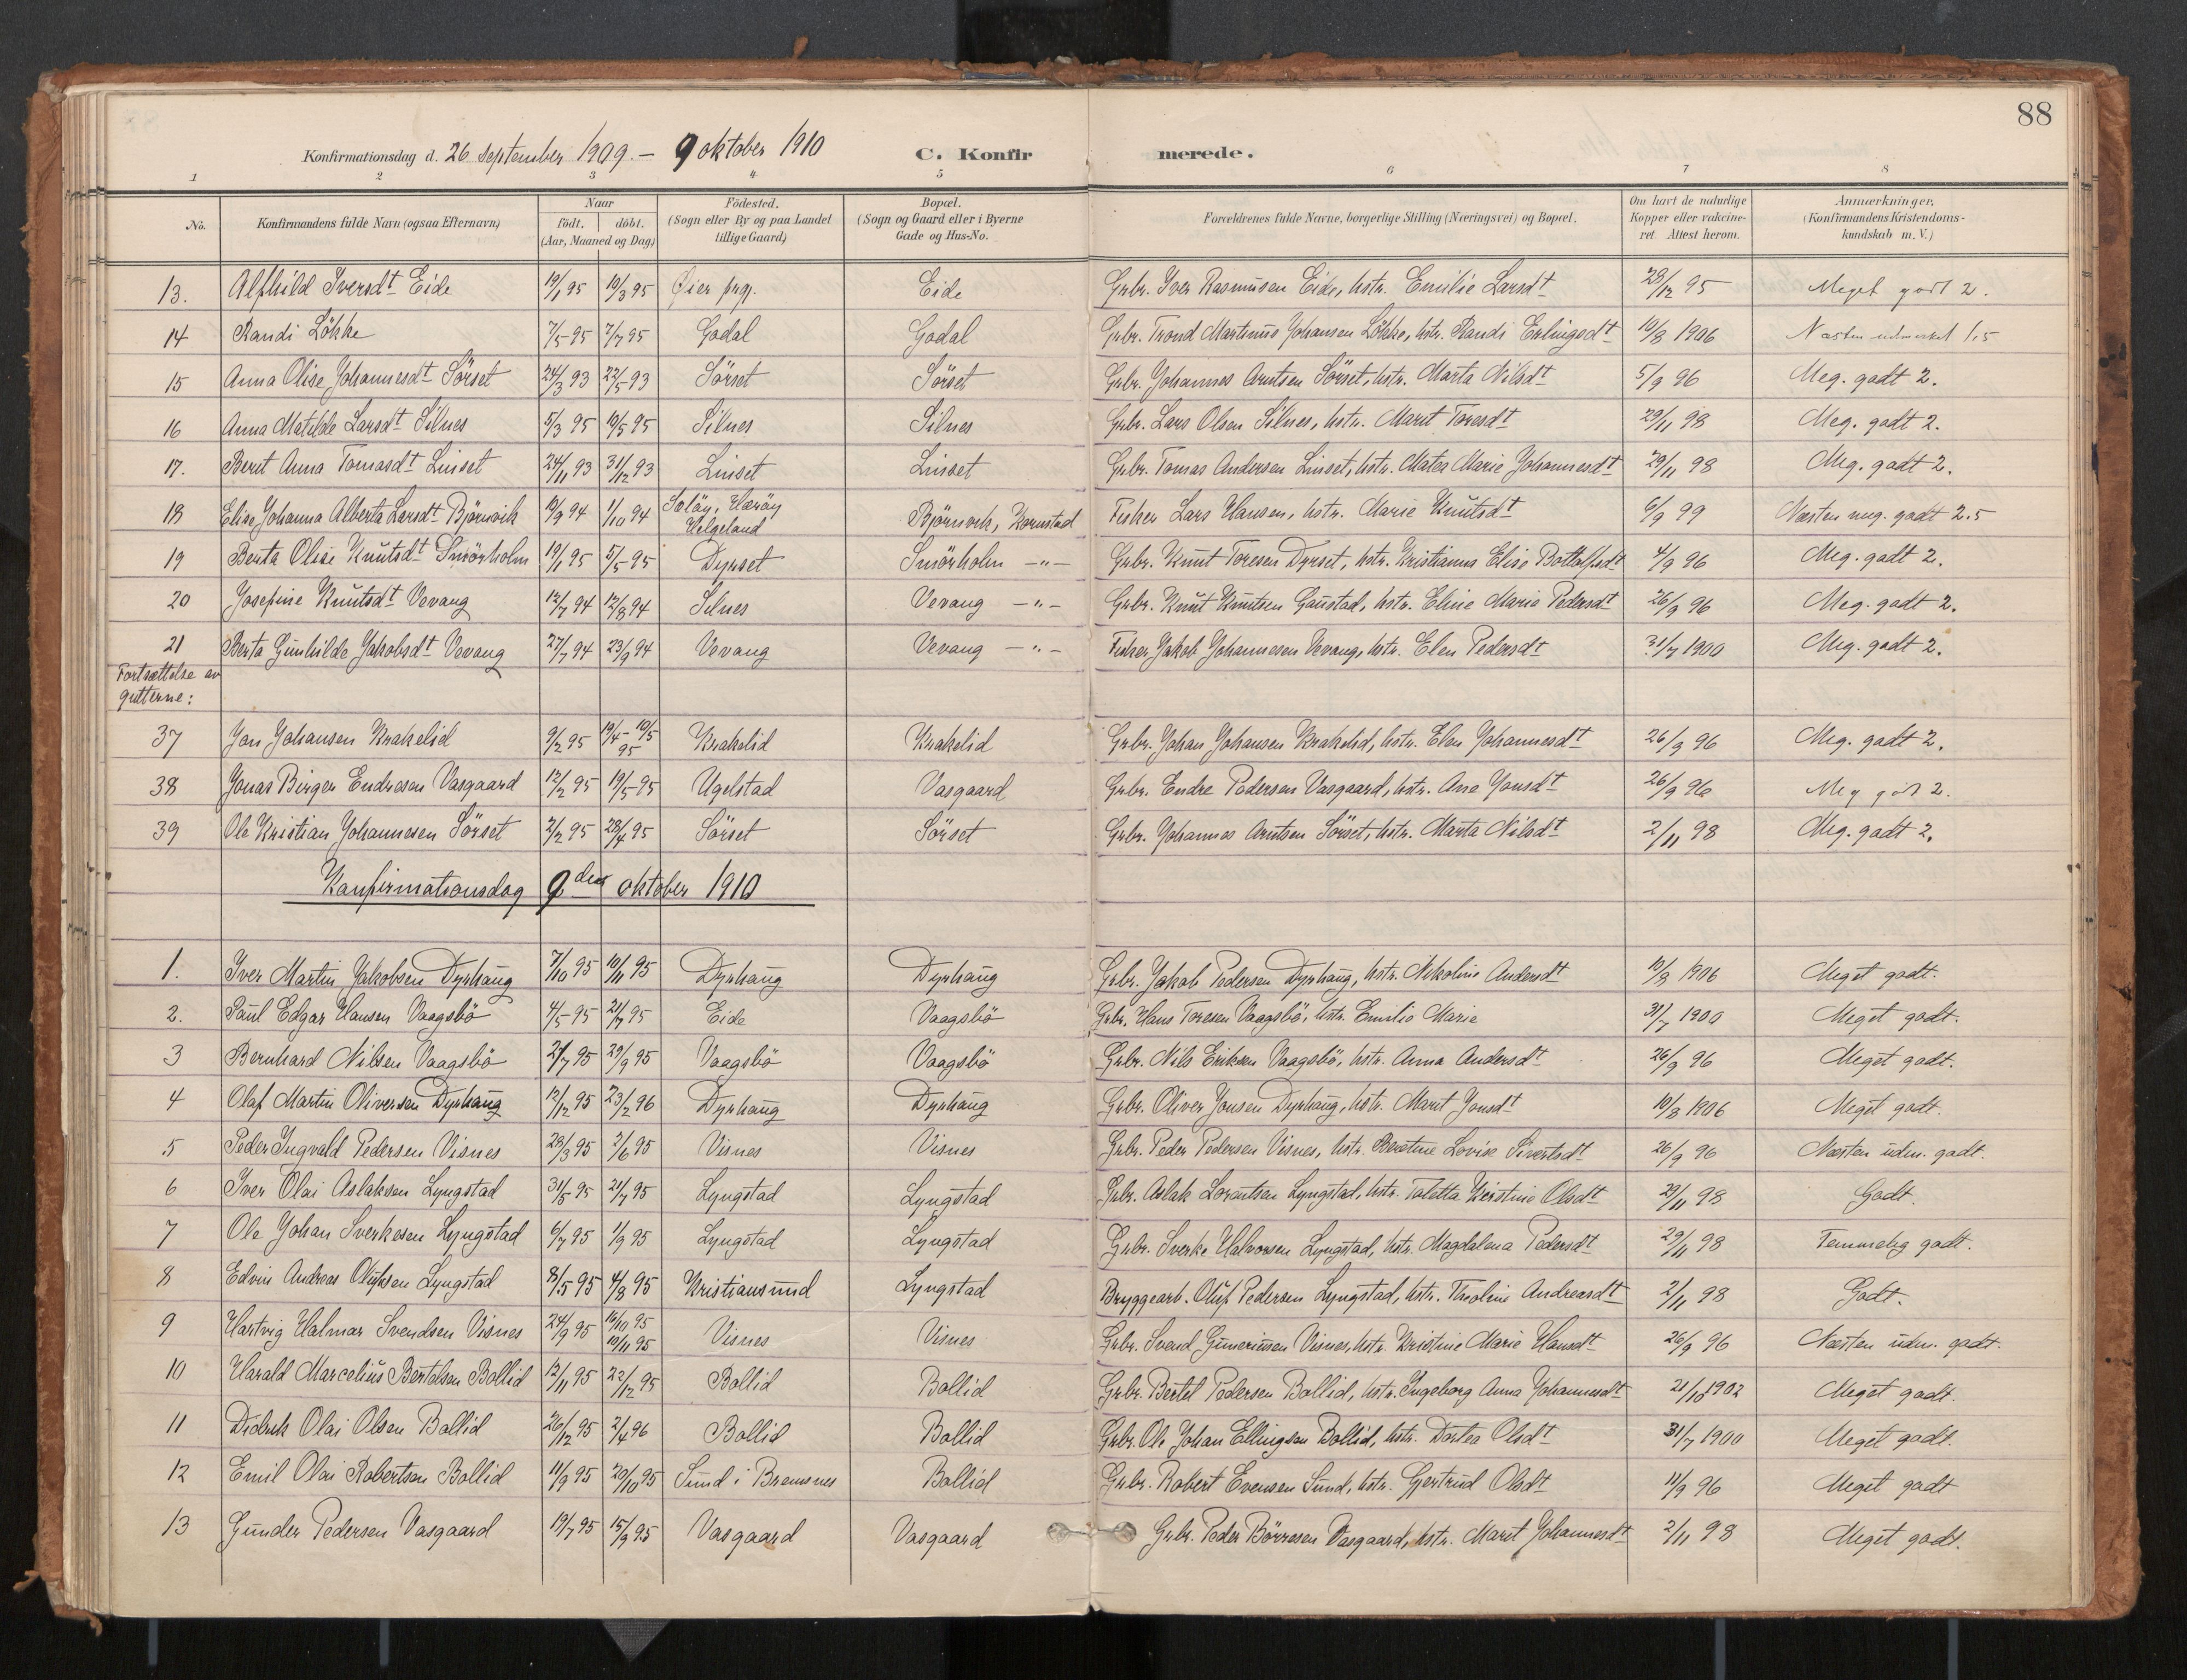 88
Konfirmationsdag d. 26 september 1909. — 9 oktober 1910 C. Konfirmerede.
1 2 3 4 5 6 7 8
No. Konfirmandens fulde Navn (ogsaa Efternavn) Naar født. døbt. (Aar, Maaned og Dag) Fødested. (Sogn eller By og paa Landet tillige Gaard) Bopæl. (Sogn og Gaard eller i Byerne Gade og Hus-No. Forældrenes fulde Navne, borgerlige Stilling (Næringsvei) og Bopæl. Om havt de naturlige Kopper eller vakcineret Attest herom. Anmærkninger. (Konfirmandens Kristendomskundskab m. V.)
13. Alfhild Iversdt Eide 19/1 95 10/3 95 Øier prgj. Eide Grbr. Iver Rasmusen Eide, hstr. Emilie Larsdt 28/12 95 Meget godt 2.
14 Randi Løkke 7/5-95 7/7 95 Godal Godal Grbr. Trond Martinus Johansen Løkke, hstr. Randi Erlingsdt 10/8 1906 Næsten udmerket 1,5
15 Anna Olise Johannesdt Sörset 24/3 93 22/5 93 Sörset Sörset Grbr. Johannes Arntsen Sörset, hstr. Marta Nilsdt 5/9 96 Meg. godt 2.
16 Anna Matilde Larsdt Silnes 5/3 95 10/5 95 Silnes Silnes Grbr. Lars Olsen Silnes, hstr. Marit Toresdt 29/11 98 Meg. godt 2.
17. Berit Anna Tomasdt Linset 24/11 93 31/12 93 Linset Linset Grbr. Tomas Andersen Linset, hstr. Matea Marie Johannesdt 29/11 98 Meg. godt 2.
18 Elise Johanna Alberta Larsdt Björnvik 10/9 94 1/10 94 Soløy, Herøy Helgeland Björnvik, Kornstad Fisker Lars Hansen, hstr. Marie Knutsdt 6/9 99 Næsten meg. godt 2.5
19 Berta Olise Knutsdt Smörholm 19/1 95 5/5-95 Dyrset Smörholm —"— Grbr. Knut Toresen Dyrset, hstr. Kristianna Elise Bottolfsdt 4/9 96 Meg. godt 2.
20 Josefine Knutsdt Vevang 12/7 94 12/8 94 Silnes Vevang —"— Grbr. Knut Knutsen Gaustad, hstr. Eline Marie Pedersdt 26/9 96 Meg. godt 2.
21 Berta Gunhilde Jakobsdt Vevang 27/7 94 23/9 94 Vevang Vevang —"— Fisker Jakob Johannesen Vevang, hstr. Elen Pedersdt 31/7 1900 Meg. godt 2.
Fortsættelse av
gutterne:
37 Jon Johansen Krakelid 9/2 95 19/4 - 10/5 95 Krakelid Krakelid Grbr. Johan Johansen Krakelid, hstr. Elen Johannesdt 26/9 96 Meg. godt 2.
38 Jonas Birger Endresen Vasgaard 12/2 95 19/5-95 Ugelstad Vasgaard Grbr. Endre Pedersen Vasgaard, hstr. Ane Jonsdt 26/9 96 Meg godt 2.
39 Ole Kristian Johannesen Sörset 2/2 95 28/4 95 Sörset Sörset Grbr. Johannes Arntsen Sörset, hstr. Marta Nilsdt 2/11 98 Meg. godt 2.
Konfirmationsdag 9den oktober 1910
1. Iver Martin Jakobsen Dyrhaug 7/10 95 10/11 95 Dyrhaug Dyrhaug Grbr. Jakob Pedersen Dyrhaug, hstr. Nikoline Andersdt 10/8 1906 Meget godt.
2. Paul Edgar Hansen Vaagsbö 4/5-95 21/7 95 Eide Vaagsbö Grbr. Hans Toresen Vaagsbö, hstr. Emilie Marie 31/7 1900 Meget godt.
3 Bernhard Nilsen Vaagsbö 21/7 95 29/9 95 Vaagsbö Vaagsbö Grbr. Nils Eriksen Vaagsbö, hstr. Anna Andersdt 26/9 96 Meget godt.
4 Olaf Martin Oliversen Dyrhaug 12/12 95 23/2 96 Dyrhaug Dyrhaug Grbr. Oliver Jonsen Dyrhaug, hstr. Marit Jonsdt 10/8 1906 Meget godt.
5 Peder Ingvald Pedersen Visnes 28/3 95 2/6 95 Visnes Visnes Grbr. Peder Pedersen Visnes, hstr. Beretine Lovise Sivertsdt 26/9 96 Næsten udm. godt.
6 Iver Olai Aslaksen Lyngstad 31/5 95 21/7 95 Lyngstad Lyngstad Grbr. Aslak Lorentsen Lyngstad, hstr. Taletta Kirstine Olsdt 29/11 98 Godt.
7 Ole Johan Sverkesen Lyngstad 6/7 95 1/9 95 Lyngstad Lyngstad Grbr. Sverke Halvorsen Lyngstad, hstr. Magdalena Pedersdt 29/11 98 Temmelig godt.
8 Edvin Andreas Olufsen Lyngstad 8/5 95 4/8 95 Kristiansund Lyngstad Bryggearb. Oluf Pedersen Lyngstad, hstr. Theoline Andreasdt 2/11 98 Godt.
9 Hartvig Halmar Svendsen Visnes 24/9 95 16/10 95 10/11 95 Visnes Visnes Grbr. Svend Guneriusen Visnes, hstr. Kristine Marie Hansdt 26/9 96 Næsten udm. godt.
10 Harald Marcelius Bertelsen Bollid 12/11 95 22/12 95 Bollid Bollid Grbr. Bertel Pedersen Bollid, hstr. Ingeborg Anna Johannesdt 21/10 1902 Meget godt.
11 Didrik Olai Olsen Bollid 26/12 95 2/4 96 Bollid Bollid Grbr. Ole Johan Ellingsen Bollid, hstr. Dortea Olsdt 31/7 1900 Meget godt.
12 Emil Olai Robertsen Bollid 11/9 95 20/10 95 Sund i Bremsnes Bollid Grbr. Robert Evensen Sund, hstr. Gjertrud Olsdt 11/9 96 Meget godt
13 Gunder Pedersen Vasgaard 19/7 95 15/9 95 Vasgaard Vasgaard Grbr. Peder Börresen Vasgaard, hstr. Marit Johannesdt 2/11 98 Meget godt.